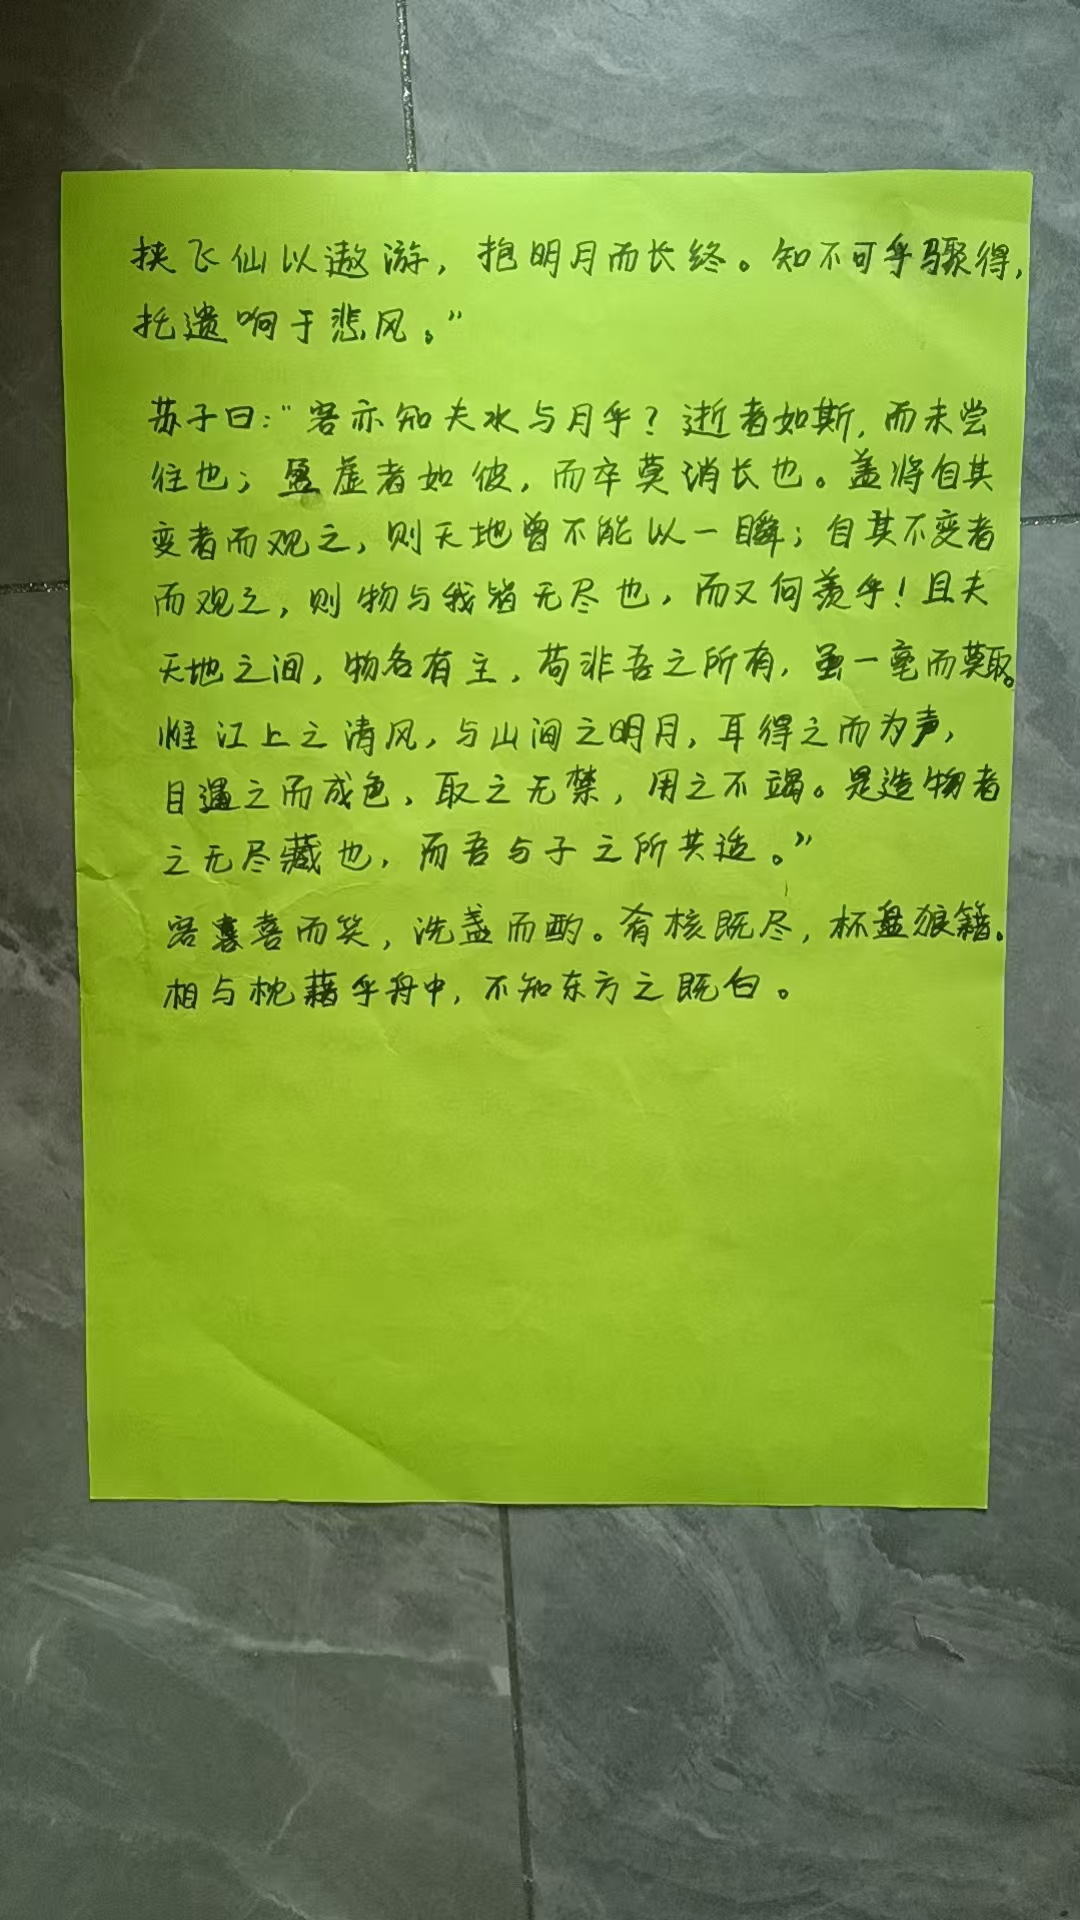 挟飞仙以遨游，抱明月而长终。知不可乎骤得，
托遗响于悲风。”
苏子曰：“客亦知夫水与月乎？逝者如斯，而未尝
往也；盈虚者如彼，而卒莫消长也。盖将自其
变者而观之，则天地曾不能以一瞬；自其不变者
而观之，则物与我皆无尽也，而又何羡乎！且夫
天地之间，物各有主，苟非吾之所有，虽一毫而莫取。
惟江上之清风，与山间之明月，耳得之而为声，
目遇之而成色，取之无禁，用之不竭。是造物者
之无尽藏也，而吾与子之所共适。”
客喜而笑，洗盏而酌。肴核既尽，杯盘狼籍。
相与枕藉乎舟中，不知东方之既白。